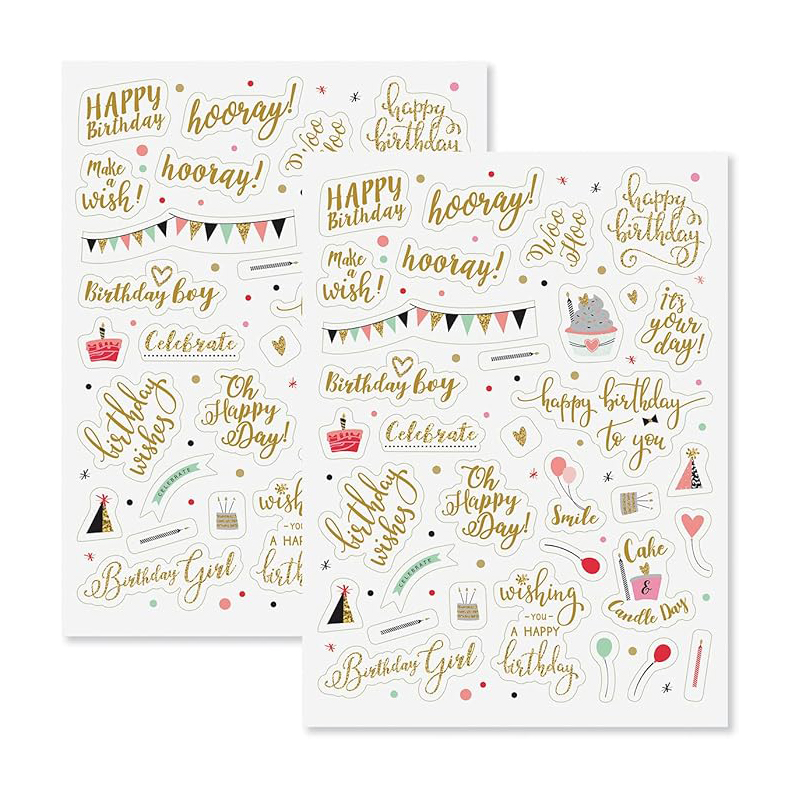 HAPPY
Birthday
hooray!
Woo
Hoo
happy
birthday
Make
a
wish!
hooray!
Birthday boy
Celebrate
birthday
wishes
Oh
Happy
Day!
CELEBRATE
wish
- YOU
A HAPP
birth
Birthday Girl
HAPPY
Birthday
hooray!
Woo
Hoo
happy
birthday
Make
a
wish!
hooray!
it's
your
day!
Birthday boy
happy birthday
to you
Celebrate
birthday
wishes
Oh
Happy
Day!
Smile
CELEBRATE
Cake
&
Candle Day
wishing
- YOU -
A HAPPY
birthday
Birthday Girl